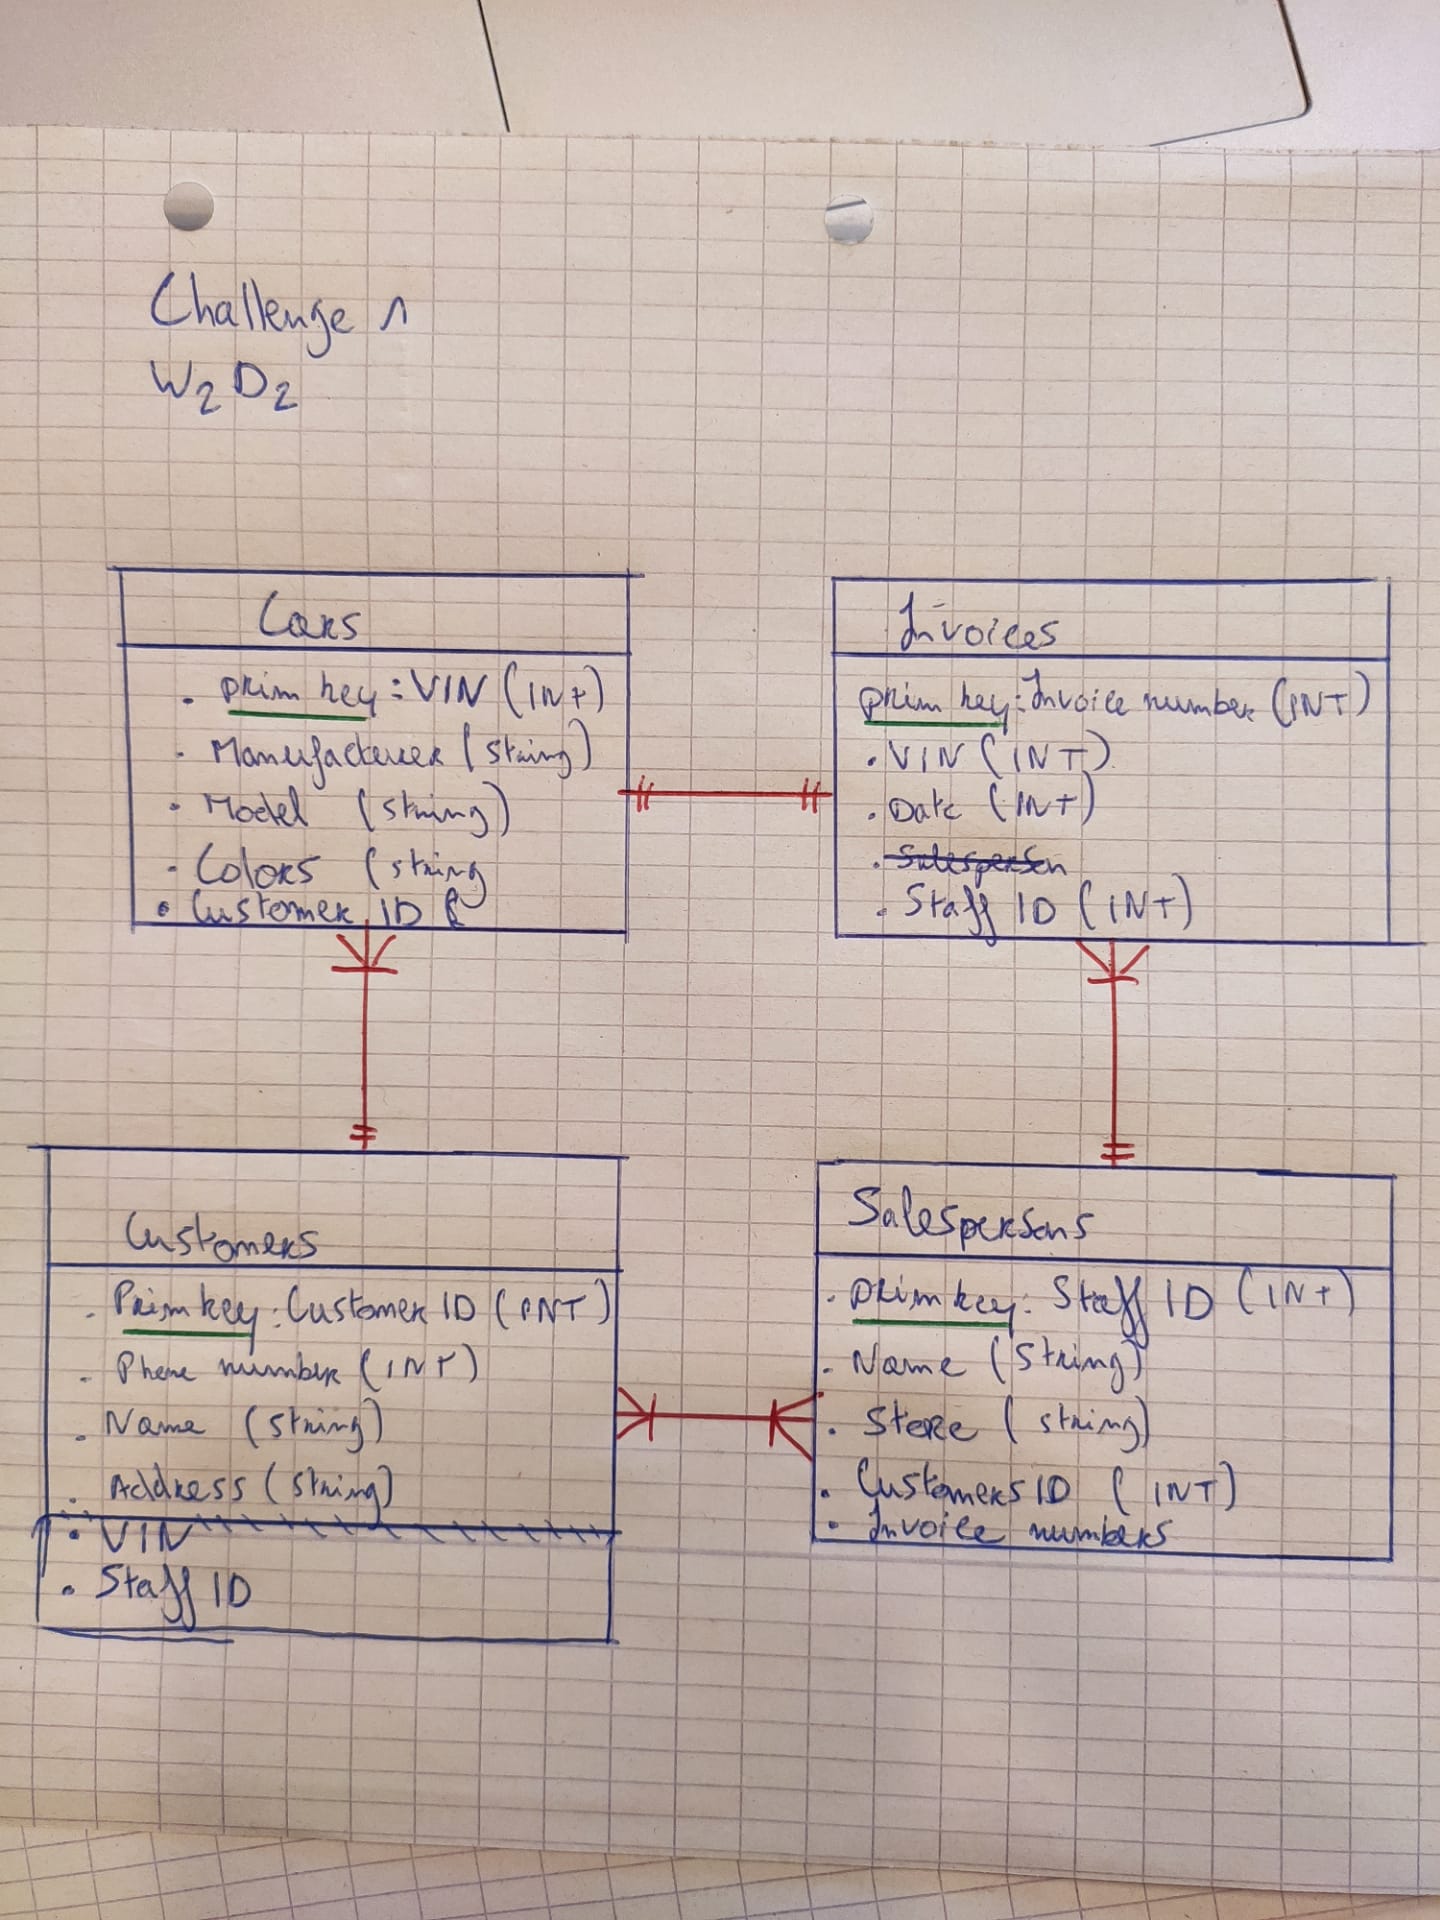 Challenge 1
W2D2
Cars
. prim key : VIN (INT)
. Manufacturer (string)
. Model (string)
. Colors (string
. Customer ID (
Invoices
prim key : Invoice number (INT)
. VIN (INT)
. Date (INT)
. Salesperson
. Staff ID (INT)
Customers
. Prim key : Customer ID (INT)
. Phone number (INT)
. Name (string)
. Address (string)
. VIN
. Staff ID
Salespersons
. prim key : Staff ID (INT)
. Name (string)
. Store (string)
. Customers ID (INT)
. Invoice numbers